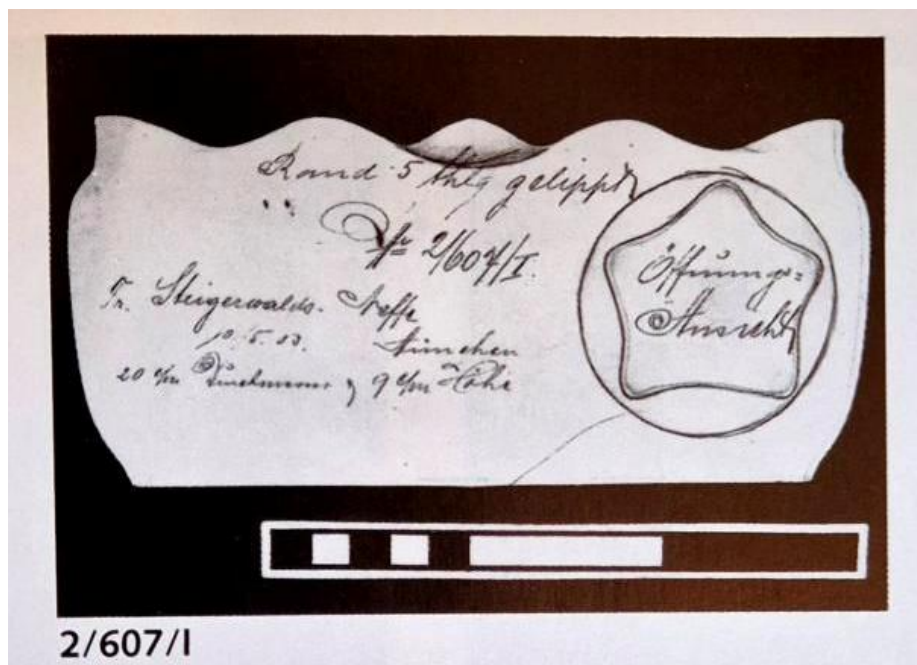 Rand 5 thlg gelippt
No 2/607/I.
Fr. Steigerwalds Neffe
10.5.03. München
20 c/m Durchmesser, 9 c/m Höhe
Öffnungs=
Ansicht
2/607/I